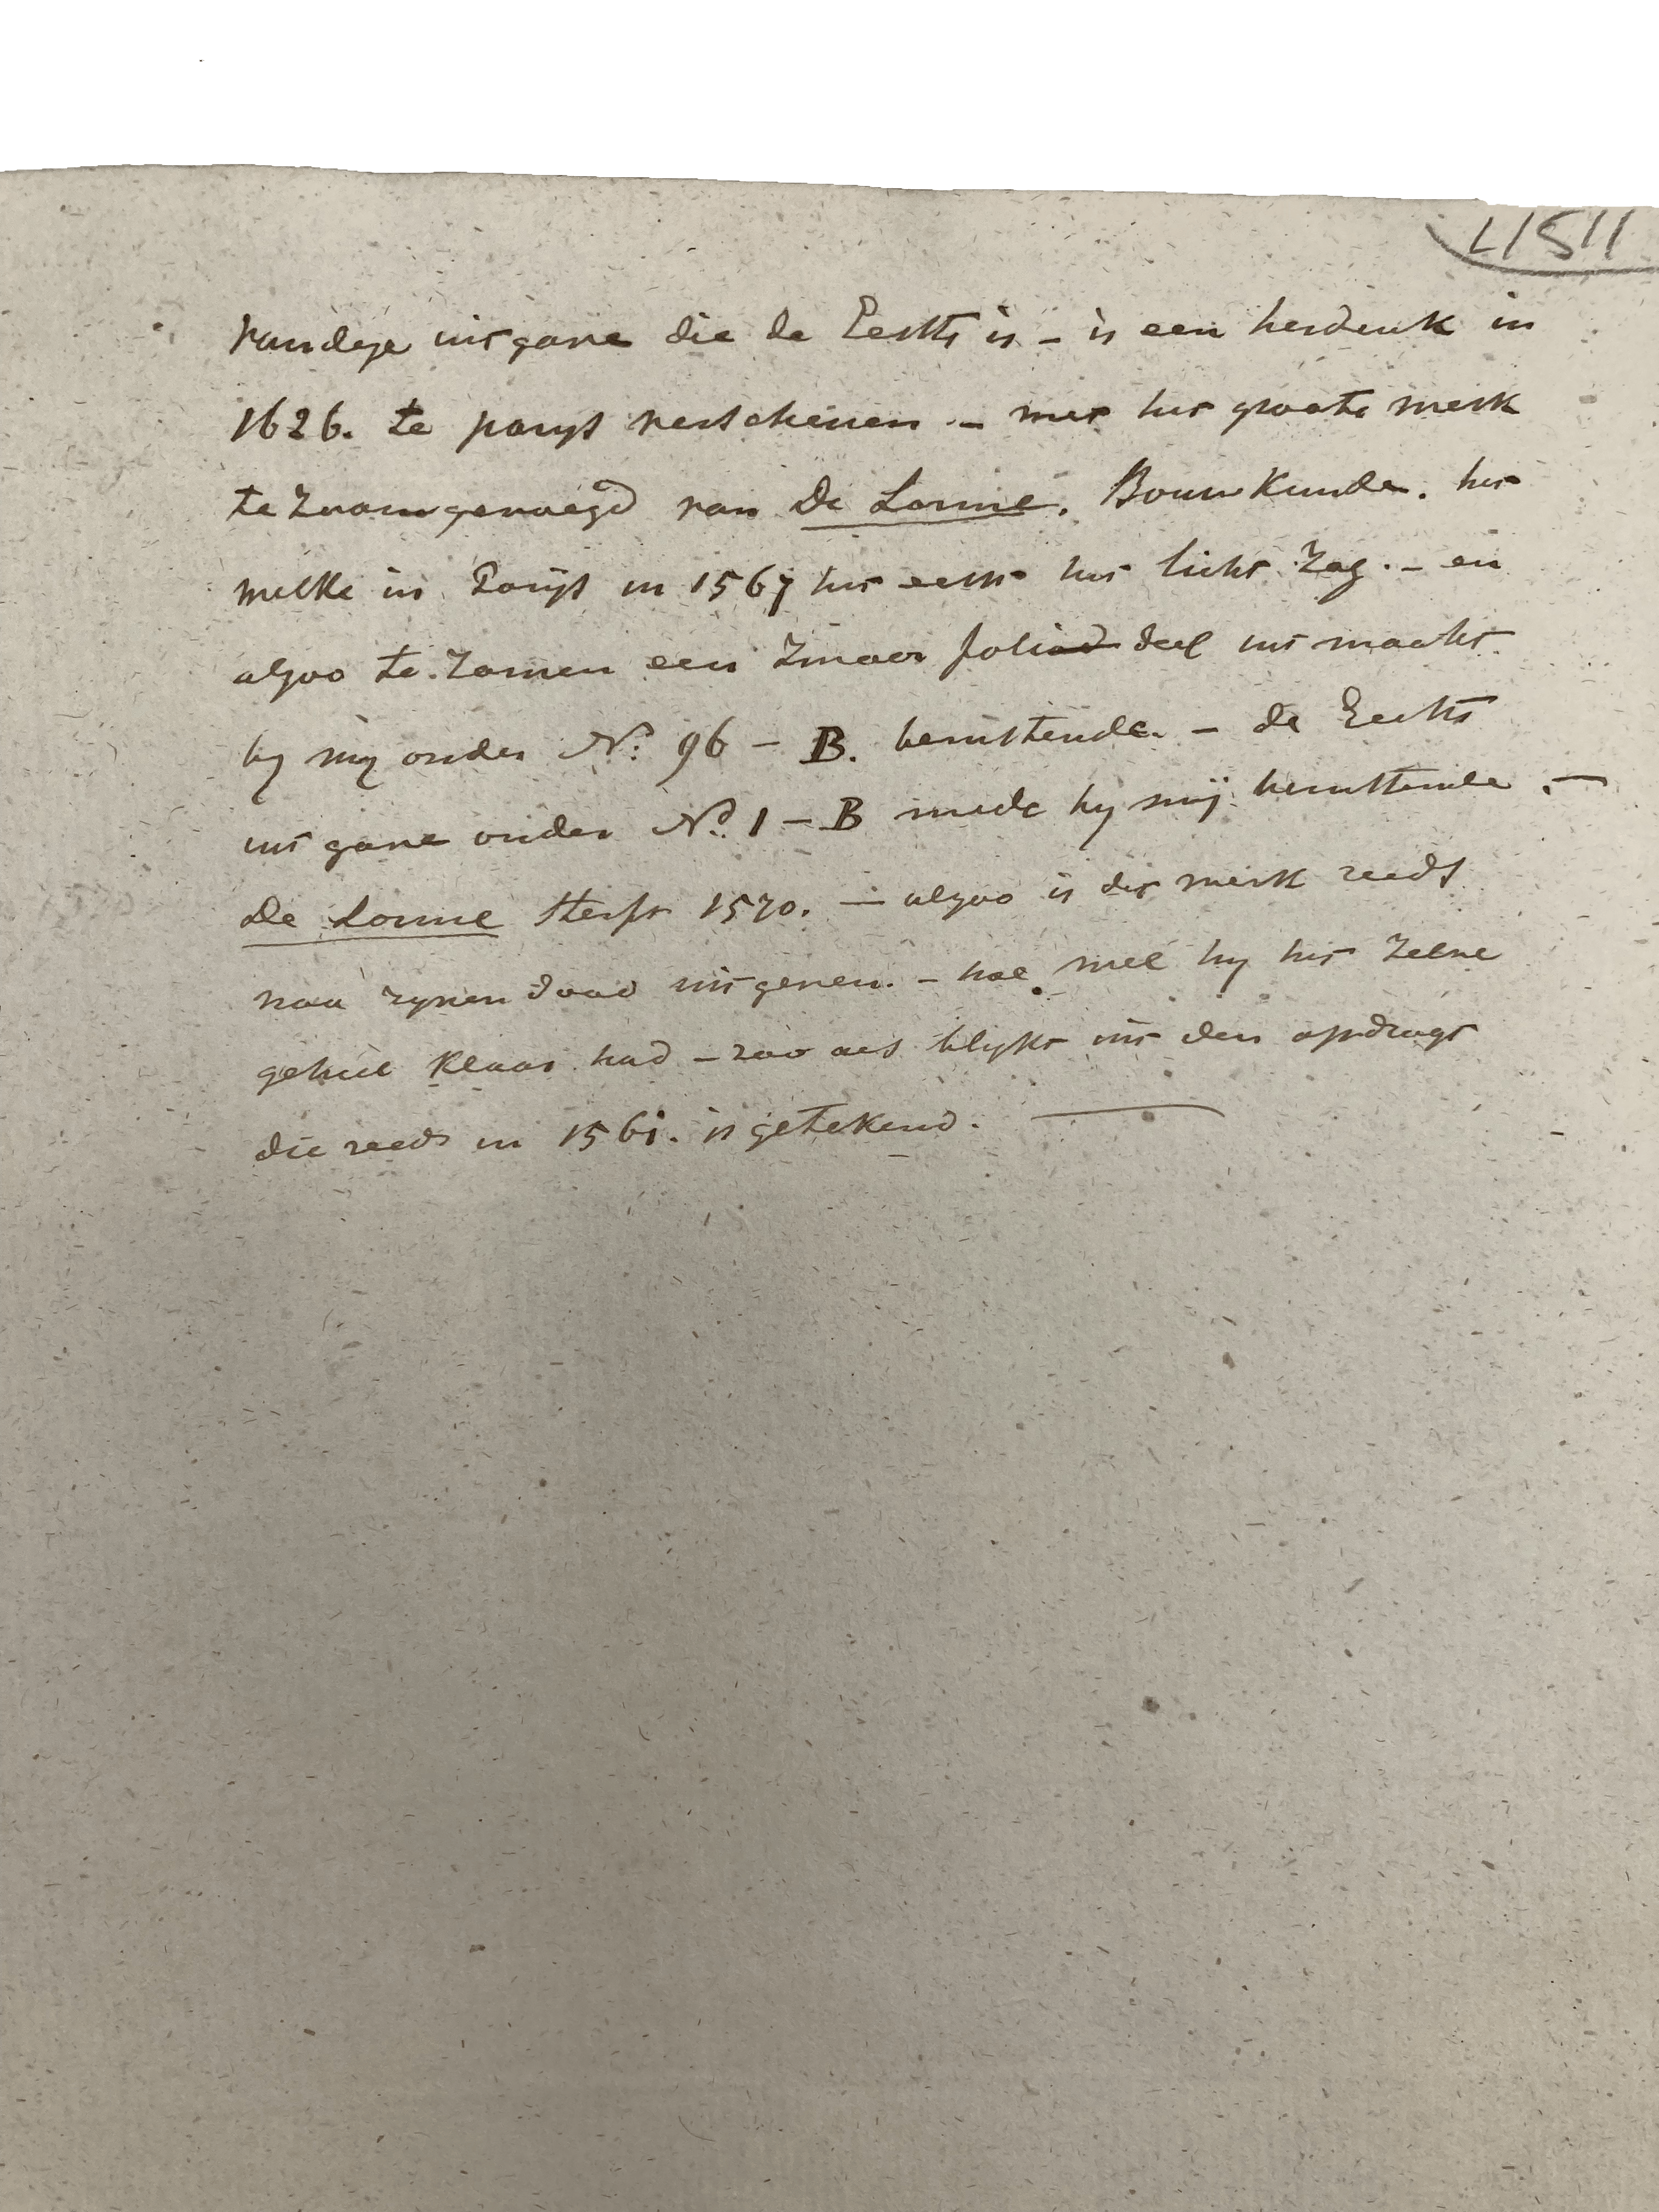 L1511
van deze uitgave die de Eerste is – is een herdruk in
1626. te parijs verschenen – met het groote werk
te Zaamgevoegd van De Lorme. Bouwkunde. het
welke in Parijs in 1567 het eerst het licht Zag. – en
alzoo te Zamen een Zwaar folio deel uit maakt
by my onder No. 96 – B. berustende. – de Eerste
uitgave onder No. 1 – B mede by mij berustende. –
De Lorme sterft 1570. – alzoo is dit werk reeds
naa zynen dood uitgeven. – hoe wel hy het Zelve
geheel klaar had – zoo als blykt uit den opdragt
die reeds in 1561. is getekend.